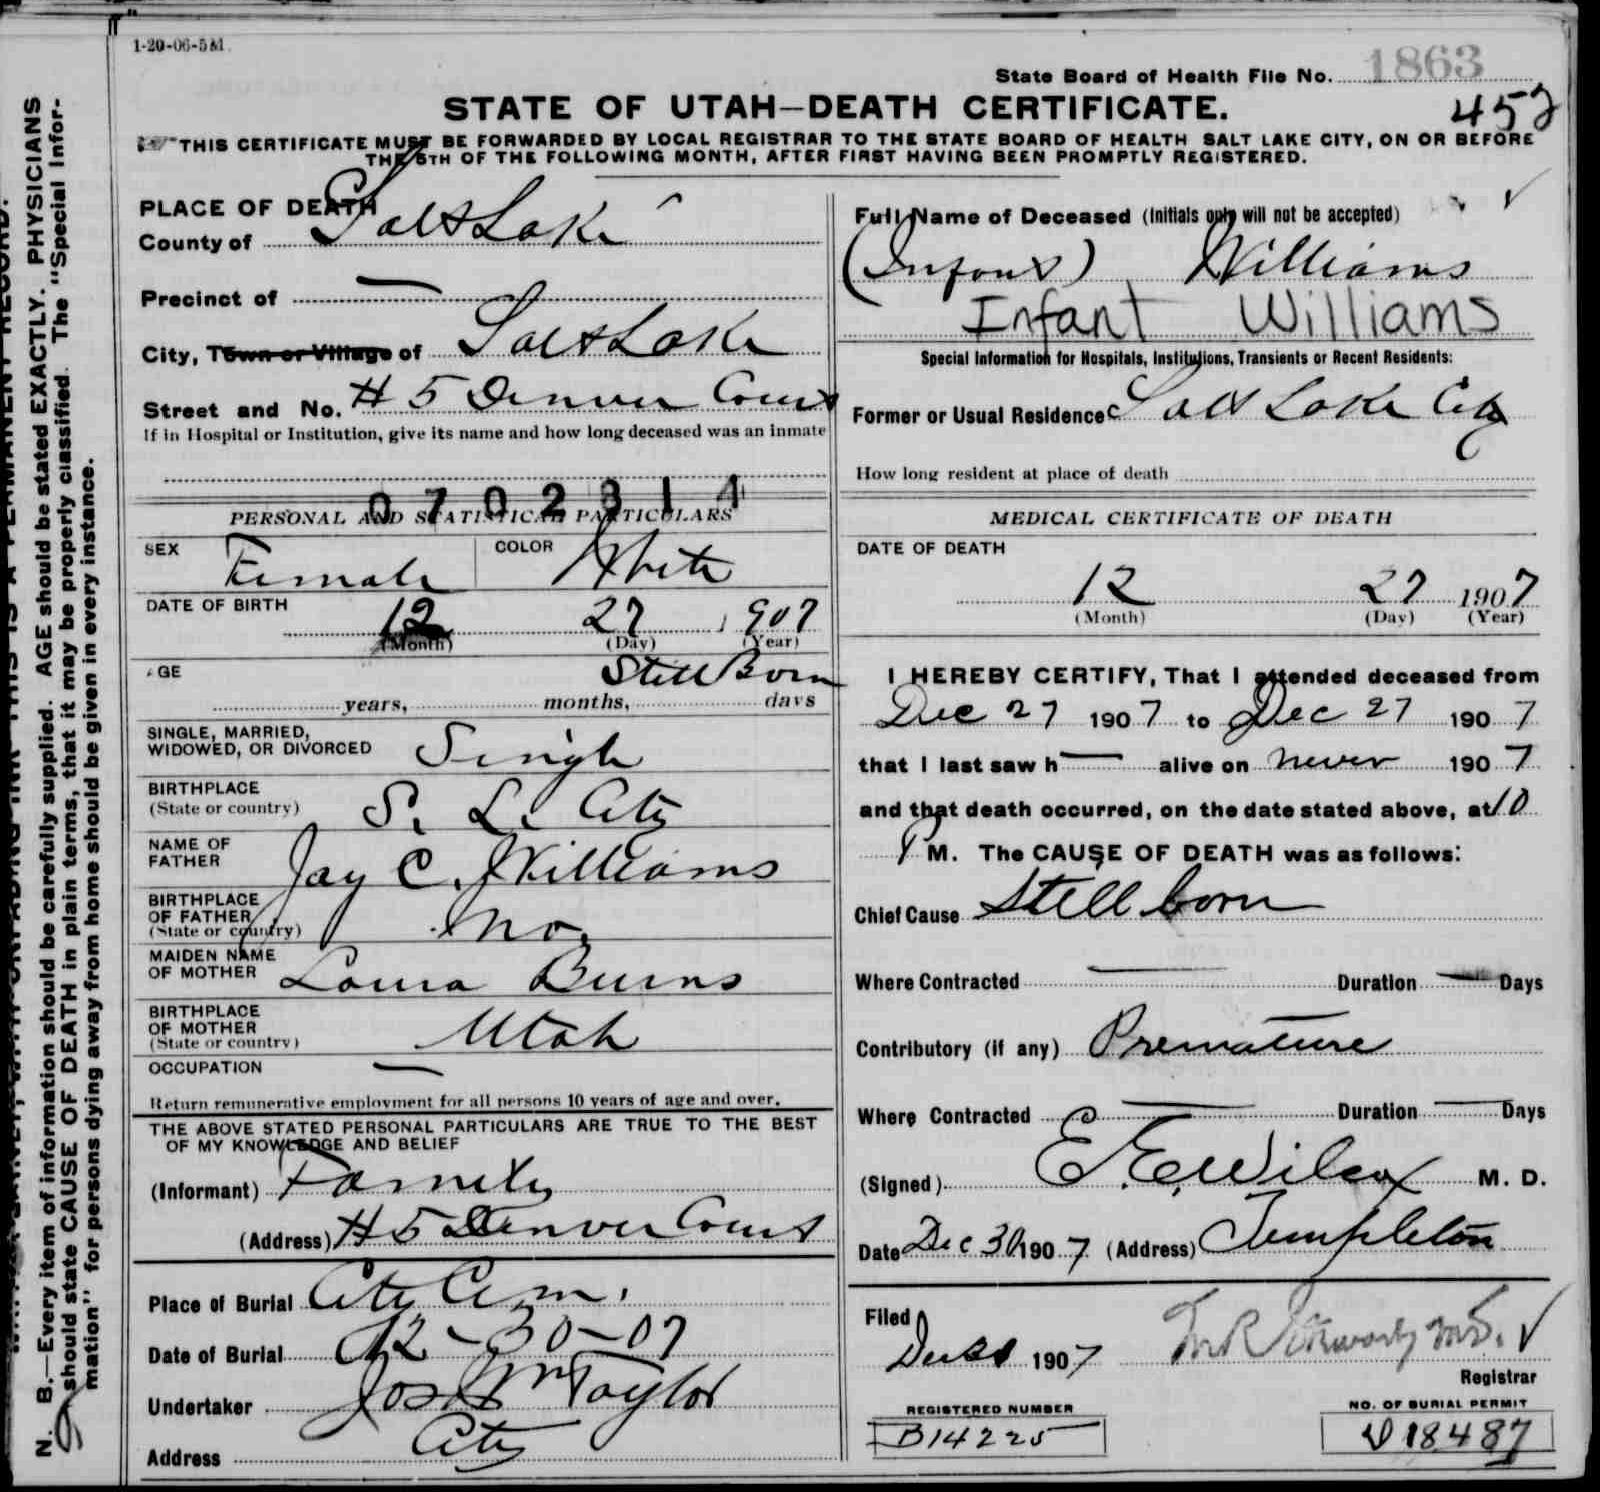 1-20-06-5M.
State Board of Health File No. 1863
STATE OF UTAH—DEATH CERTIFICATE.
452
THIS CERTIFICATE MUST BE FORWARDED BY LOCAL REGISTRAR TO THE STATE BOARD OF HEALTH SALT LAKE CITY, ON OR BEFORE
THE 5TH OF THE FOLLOWING MONTH, AFTER FIRST HAVING BEEN PROMPTLY REGISTERED.
PLACE OF DEATH
County of Salt Lake
Precinct of —
City, Town or Village of Salt Lake
Street and No. # 5 Denver Court
If in Hospital or Institution, give its name and how long deceased was an inmate
0702314
PERSONAL AND STATISTICAL PARTICULARS
SEX Female COLOR White
DATE OF BIRTH 12 27 1907
(Month) (Day) (Year)
AGE Still Born
years, months, days
SINGLE, MARRIED,
WIDOWED, OR DIVORCED Single
BIRTHPLACE
(State or country) S. L. City
NAME OF
FATHER Jay C. Williams
BIRTHPLACE
OF FATHER
(State or country) Mo.
MAIDEN NAME
OF MOTHER Laura Burns
BIRTHPLACE
OF MOTHER
(State or country) Utah
OCCUPATION —
Return remunerative employment for all persons 10 years of age and over.
THE ABOVE STATED PERSONAL PARTICULARS ARE TRUE TO THE BEST
OF MY KNOWLEDGE AND BELIEF
(Informant) Family
(Address) # 5 Denver Court
Place of Burial City Cem.
Date of Burial 12-30-07
Undertaker Jos Wm Taylor
Address City
Full Name of Deceased (Initials only will not be accepted)
(Infant) Williams
Infant Williams
Special Information for Hospitals, Institutions, Transients or Recent Residents:
Former or Usual Residence Salt Lake City
How long resident at place of death
MEDICAL CERTIFICATE OF DEATH
DATE OF DEATH
12 27 1907
(Month) (Day) (Year)
I HEREBY CERTIFY, That I attended deceased from
Dec 27 1907 to Dec 27 1907
that I last saw h— alive on never 1907
and that death occurred, on the date stated above, at 10
P M. The CAUSE OF DEATH was as follows:
Chief Cause Still born
Where Contracted — Duration — Days
Contributory (if any) Premature
Where Contracted — Duration — Days
(Signed) E. E. Wilcox M. D.
Date Dec 30 1907 (Address) Templeton
Filed
1907
Registrar
REGISTERED NUMBER
B14225
NO. OF BURIAL PERMIT
18487
N. B.—Every item of information should be carefully supplied. AGE should be stated EXACTLY. PHYSICIANS
should state CAUSE OF DEATH in plain terms, that it may be properly classified. The "Special Infor-
mation" for persons dying away from home should be given in every instance.